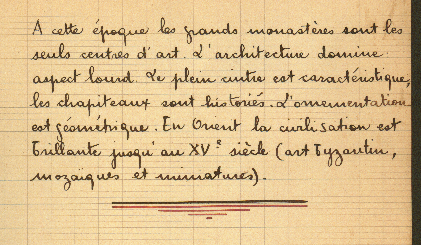 A cette époque les grands monastères sont les
seuls centres d'art. L'architecture domine
aspect lourd. Le plein cintre est caractéristique,
les chapiteaux sont historiés. L'ornementation
est géométrique. En Orient la civilisation est
brillante jusqu'au XVe siècle (art byzantin,
mozaïques et miniatures).